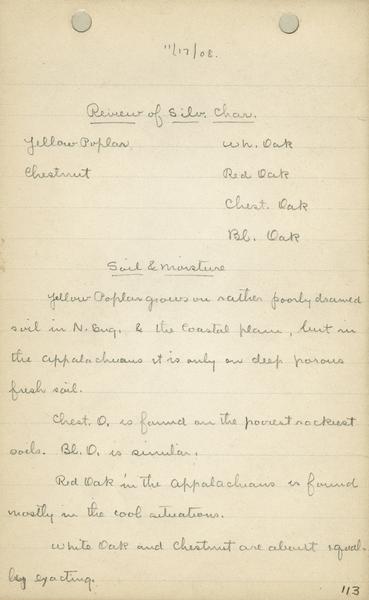 11/17/08.
Review of Silv. Char.
Yellow Poplar Wh. Oak
Chestnut Red Oak
Chest. Oak
Bl. Oak
Soil & Moisture
Yellow Poplar grows on rather poorly drained
soil in N. Eng. & the Coastal plain, but in
the Appalachians it is only on deep porous
fresh soil.
Chest. O. is found on the poorest rockiest
soils. Bl. O. is similar.
Red Oak in the Appalachians is found
mostly in the cool situations.
White Oak and Chestnut are about equal-
ly exacting.
113